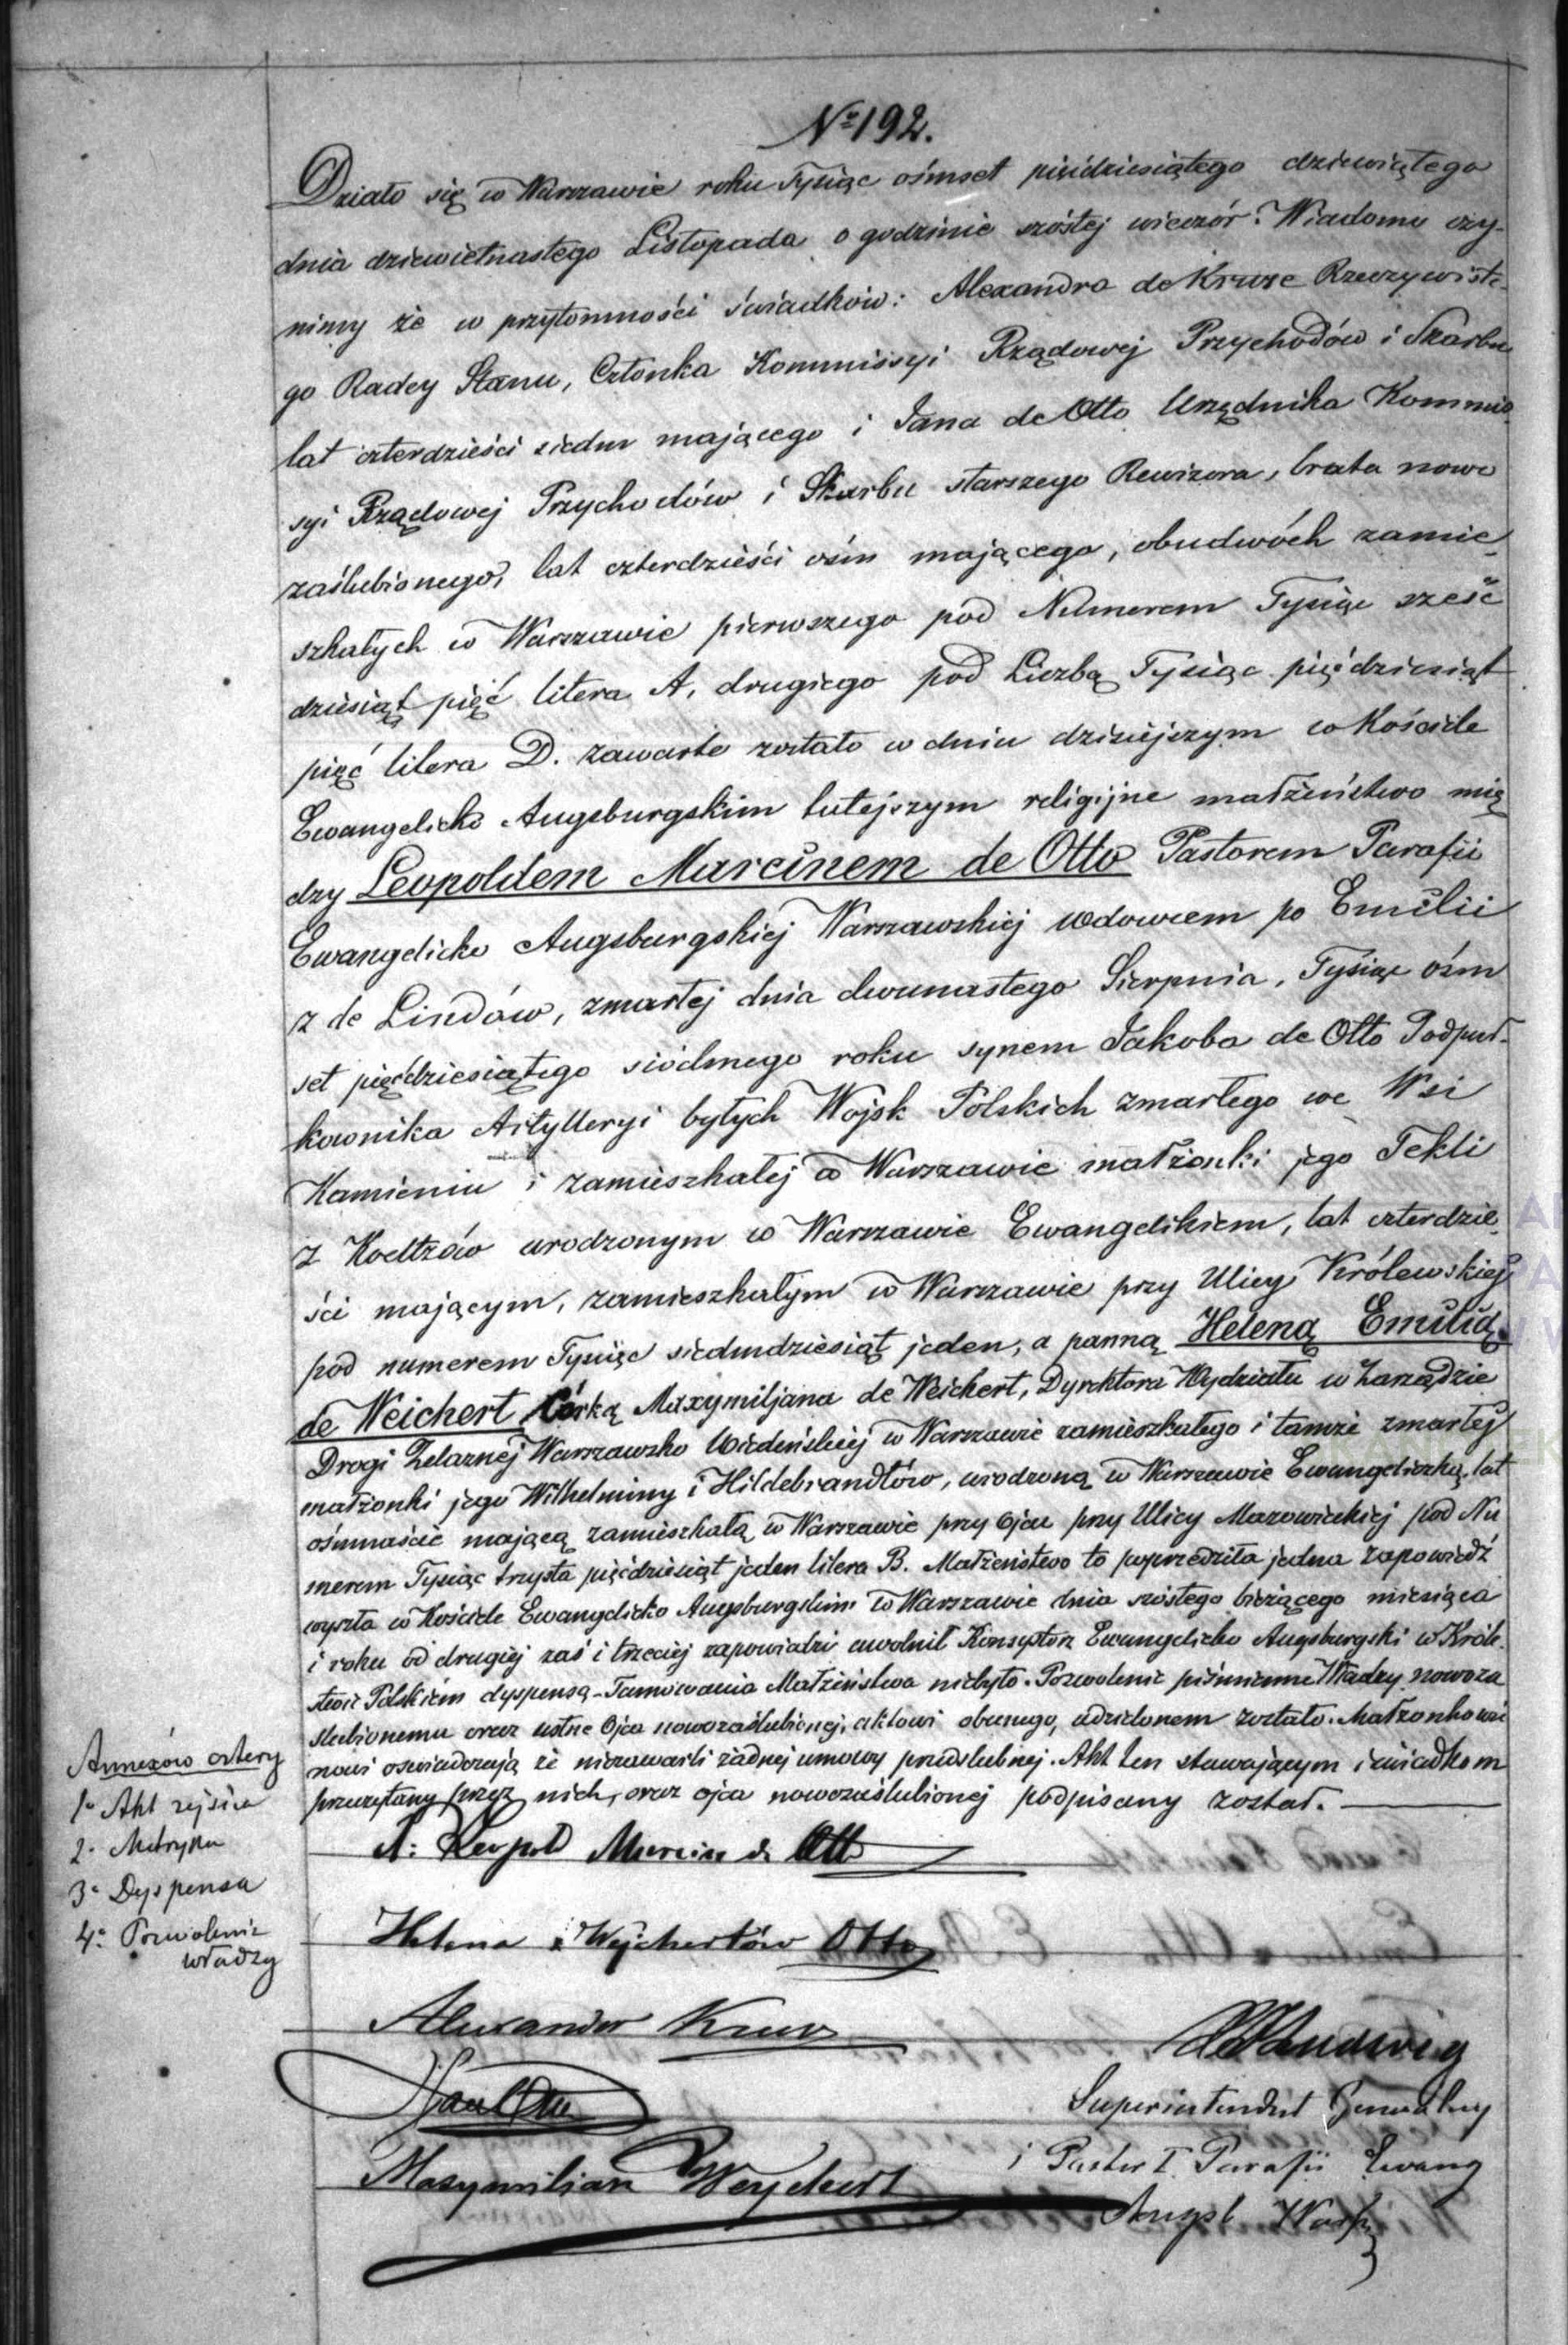 No 192.
Działo się w Warszawie roku Tysiąc ośmset pięćdziesiątego dziewiątego
dnia dziewiętnastego Listopada o godzinie szóstej wieczór. Wiadomo czy-
nimy że w przytomności świadków: Alexandra de Kruze Rzeczywiste-
go Radcy Stanu, Członka Kommissyi Rządowej Przychodów i Skarbu
lat czterdzieści siedm mającego i Jana de Otto Urzędnika Kommis
syi Rządowej Przychodów i Skarbu starszego Rewizora, brata nowo
zaślubionego, lat czterdzieści ośm mającego, obudwóch zamie_
szkałych w Warszawie pierwszego pod Numerem Tysiąc sześć
dziesiąt pięć litera A, drugiego pod Liczbą Tysiąc pięćdziesiąt
pięć litera D. zawarte zostało w dniu dzisiejszym w Kościele
Ewangelicko Augsburgskim tutejszym religijne małżeństwo mię
dzy Leopoldem Marcinem de Otto Pastorem Parafii
Ewangelicko Augsburgskiej Warszawskiej wdowcem po Emilii
z de Lindów, zmarłej dnia dwunastego Sierpnia, Tysiąc ośm
set pięćdziesiątego siódmego roku synem Jakoba de Otto Podpuł-
kownika Artylleryi byłych Wojsk Polskich zmarłego we Wsi
Kamieniu i zamieszkałej w Warszawie małżonki jego Tekli
z Koeltzów urodzonym w Warszawie Ewangelikiem, lat czterdzie_
ści mającym, zamieszkałym w Warszawie przy Ulicy Królewskiej
pod numerem Tysiąc siedmdziesiąt jeden, a panną Heleną Emilią
de Weichert Córką Maxymiljana de Weichert, Dyrektora Wydziału w Zarządzie
Drogi Żelaznej Warszawsko Wiedeńskiej w Warszawie zamieszkałego i tamże zmarłej
małżonki jego Wilhelminy i Hildebrandtów, urodzoną w Warszawie Ewangeliczką, lat
ośmnaście mającą zamieszkałą w Warszawie przy Ojcu przy Ulicy Mazowieckiej pod Nu
merem Tysiąc trzysta pięćdziesiąt jeden litera B. Małżeństwo to poprzedziła jedna zapowiedź
wyszła w Kościele Ewangelicko Augsburgskim w Warszawie dnia szóstego bieżącego miesiąca
i roku od drugiej zaś i trzeciej zapowiedzi uwolnił Konsystorz Ewangelicko Augsburgski w Króle-
stwie Polskiem dyspensą - Tamowania Małżeństwa niebyło. Pozwolenie piśmienne Władzy nowoza
ślubionemu oraz ustne Ojca nowozaślubionej, aktowi obecnego, udzielonem zostało. Małżonkowie
nowi oświadczają że niezawarli żadnej umowy przedślubnej. Akt ten stawającym i świadkom
przeczytany przez nich, oraz ojca nowozaślubionej podpisany został.
Annexów cztery
1o Akt zejścia
2. Metryka
3o Dyspensa
4o Pozwolenie
władzy
Leopold Marcin de Otto
Helena z Wejchertów Otto
Alexander Kruze
Ludwig
Jan Otto
Superintendent Generalny
Maxymilian Weychert
i Pastor I. Parafii Ewang
Augsb Warsz